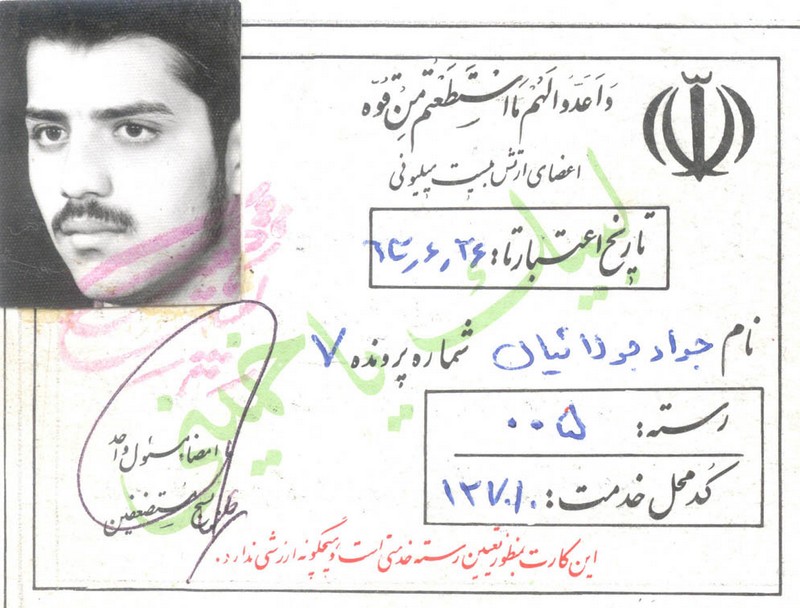 وَاَعِدُّوا لَهُمْ مَا اسْتَطَعْتُمْ مِنْ قُوَّه
اعضای ارتش بیست میلیونی
تاریخ اعتبار تا: ۶۳٫۶٫۲۶
نام جواد جولائیان شماره پرونده ۷
رسته: ۰۰۵
کد محل خدمت: ۱۲۷۰۱۰
لبیک یا خمینی
امضاء مسئول واحد
بسیج مستضعفین
این کارت بمنظور تعیین رسته خدمتی است و هیچگونه ارزشی ندارد.